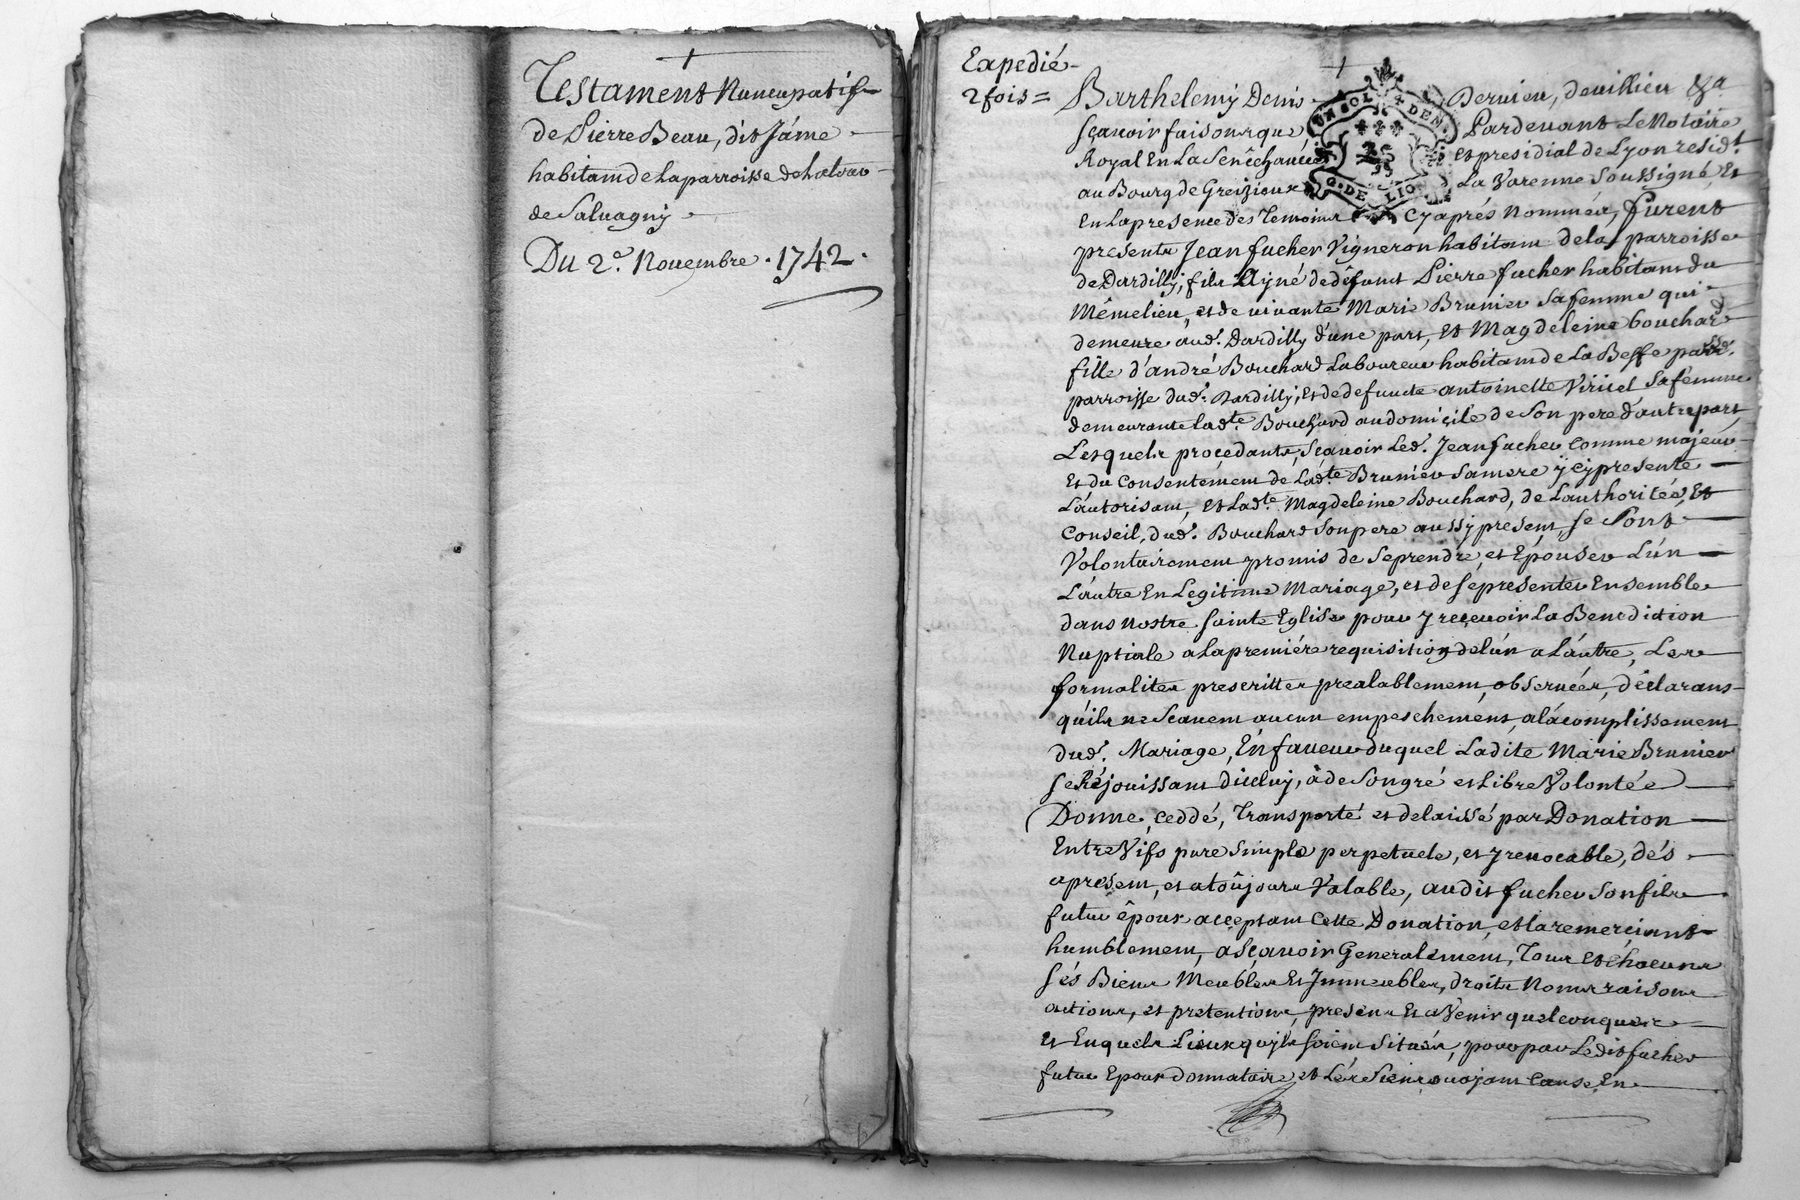 Testament Nuncupatif
de Pierre Beau, dit Jáme
habitant de La parroisse de Latour
de Saluagny
Du 2e. Nouembre . 1742 .
Expedié
2 fois =
Barthelemy Denis Deruieu, deuillieu &a
sçauoir faisons que Pardeuant Le Notaire
Royal En La Senêchaucée et presidial de Lyon resid.t
au Bourg de Greizieux La Varenne Soussigné, Et
En La presence des Temoins Cyaprés Nommés, furent
presents Jean fucher Vigneron habitant de la parroisse
de Dardilly, fils Ayné de défunt Pierre fucher habitant du
Mêmelieu, et de viuante Marie Brunier Safemme qui
demeure aud. Dardilly d'une part, Et Magdeleine bouchard
fille d'andré Bouchard Laboureur habitant de La Beffe
parroisse dud. Dardilly, Et de defuncte antoinette Viricel Safemme
demeurante lad.te Bouchard au domiçile de Son pere d'autre part,
Lesquels proçedants, Sçauoir Led. Jean fucher Comme majeur
Et du Consentement de Lad.te Brunier Samere ÿ cy presente
L'autorisant, et Lad.te Magdeleine Bouchard, de L'authoritée, Et
Conseil, dud. Bouchard Son pere aussy present, se Sont
Volontairement promis de Seprendre, et Épouser L'un
L'autre En Legitime Mariage, et de sepresenter Ensemble
dans Nostre sainte Eglise pour y reçeuoir La Benediction
Nuptiale a La premiére requisition de l'ún a L'autre, Les
formalites prescrittes prealablement, obseruées, déclarans
qu'ils ne Scauent aucun empeschement, a l'acomplissement
dud. Mariage, En faueur duquel Ladite Marie Brunier
se Réjouissant d'iceluy, à de Son gré et Libre Volontée
Donne, ceddé, Transporté et delaissé par Donation
Entre Vifs pure Simple perpetuele, et yreuocable, dés
apresent, et a toûjours Valable, audit fucher Son fils
futur époux acçeptant Cette Donation, et La remerçiant
humblement, a Sçauoir Generalement, Tous et chacuns
sés Biens Meubles Et Jmmeubles, droits Noms raisons
actions, et pretentions, presens Et a Venir quelconques
et En quels Lieux quyls soient Situés, pour par Ledit fucher
futur Epoux donnataire et Les Siens ou ayant Cause, En